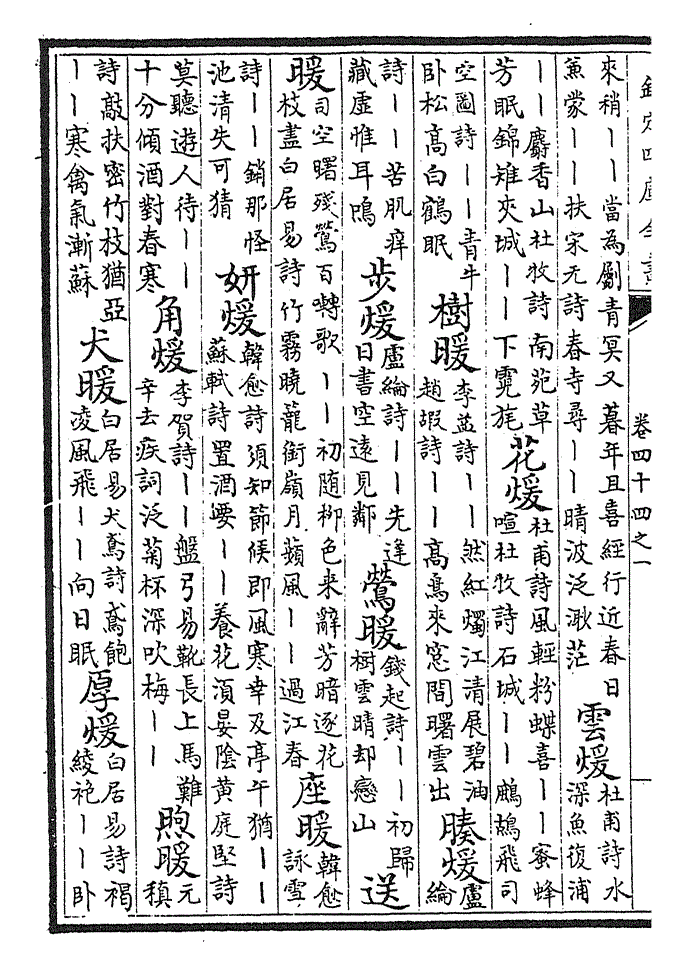 卷四十四之一
來稍丨丨當為劚青冥又暮年且喜經行近春日
兼蒙丨丨扶宋无詩春寺尋丨丨晴波泛渺茫
雲煖
杜甫詩水
深魚復浦
丨丨麝香山杜牧詩南苑草
芳眠錦雉夾城丨丨下霓旄
花煖
杜甫詩風輕粉蝶喜丨丨蜜蜂
喧杜牧詩石城丨丨鷓鴣飛司
空圖詩丨丨青牛
卧松高白鶴眠
樹暖
李益詩丨丨然紅燭江清展碧油
趙嘏詩丨丨高鳥來窓間曙雲出
腠煖
盧
綸
詩丨丨苦肌痒
藏虛惟耳鳴
步煖
盧綸詩丨丨先逢
日書空遠見鄰
鶯暖
錢起詩丨丨初歸
樹雲晴却戀山
送
暖
司空曙殘鶯百囀歌丨丨初隨柳色来辭芳暗逐花
枝盡白居易詩竹霧曉籠銜嶺月蘋風丨丨過江春
座暖
韓愈
詠雪
詩丨丨銷那怪
池清失可猜
妍煖
韓愈詩須知節候即風寒幸及亭午猶丨丨
蘇軾詩置酒要丨丨養花湏晏陰黄庭堅詩
莫聽遊人待丨丨
十分傾酒對春寒
角煖
李賀詩丨丨盤弓易靴長上馬難
辛去疾詞泛菊杯深吹梅丨丨
煦暖
元
稹
詩敲扶密竹枝猶亞
丨丨寒禽氣漸蘇
犬暖
白居易犬鳶詩鳶飽
凌風飛丨丨向日眠
厚煖
白居易詩褐
綾袍丨丨卧